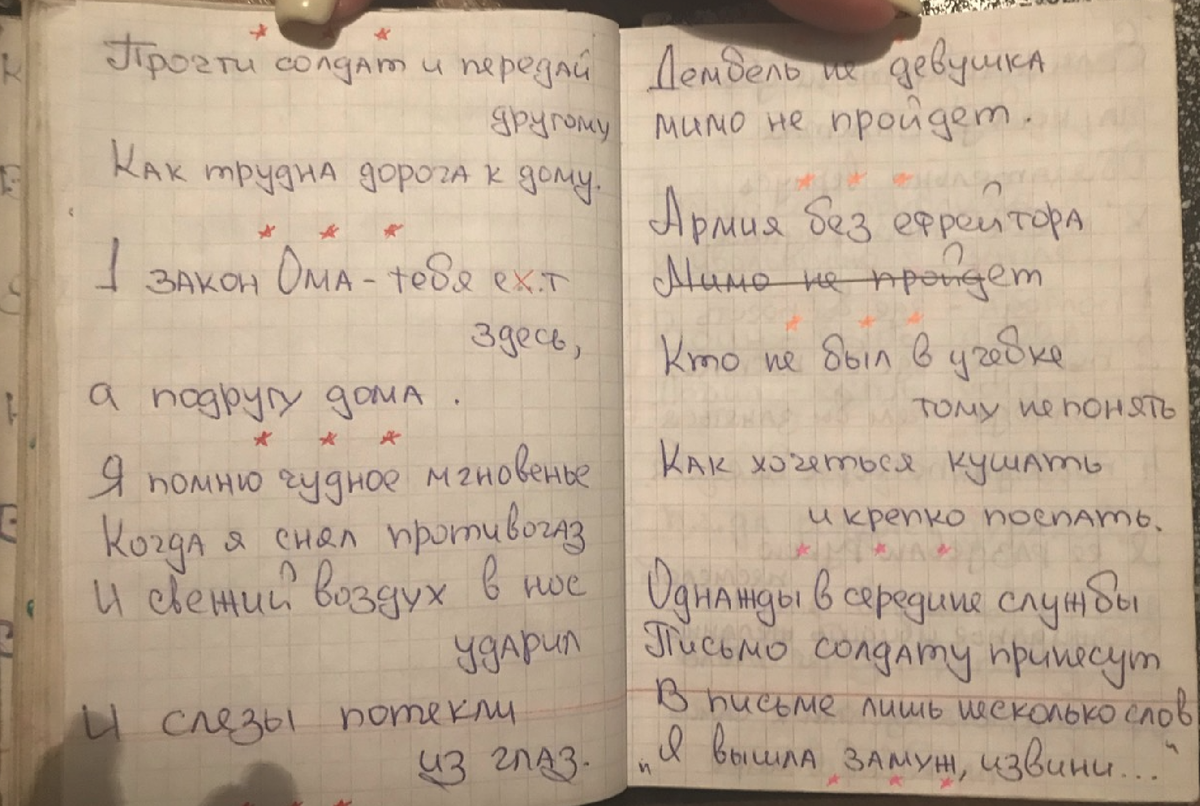 Прочти солдат и передай
другому
Как трудна дорога к дому.
1 закон Ома - тебя ех.т
здесь,
а подругу дома.
Я помню чудное мгновенье
Когда я снял противогаз
И свежий воздух в нос
ударил
И слезы потекли
из глаз.
Дембель не девушка
мимо не пройдет.
Армия без ефрейтора
Мимо не пройдет
Кто не был в учебке
тому не понять
Как хочеться кушать
и крепко поспать.
Однажды в середине службы
Письмо солдату принесут
В письме лишь несколько слов
„Я вышла замуж, извини..."